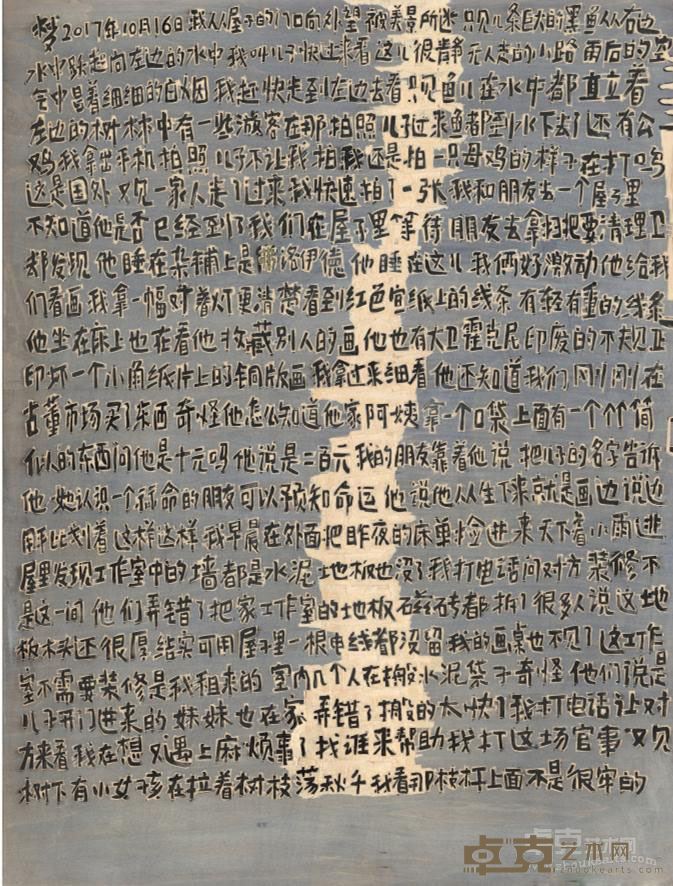 梦2017年10月16日我从屋子的门口向外望被美景所迷只见几条巨大的黑鱼从右边
水中跃起向左边的水中我叫儿子快过来看这儿很静无人走的小路雨后的空
气中冒着细细的白烟我赶快走到左边去看只见鱼儿在水中都直立着
左边的树林中有一些游客在那拍照儿子过来鱼都到水下去了还有公
鸡我拿出手机拍照儿子不让我拍我还是拍一只母鸡的样子在打鸣
这是国外又见一家人走了过来我快速拍了一张我和朋友去一个屋子里
不知道他是否已经到了我们在屋子里等待朋友去拿扫把要清理卫
却发现他睡在杂铺上是洛伊德他睡在这儿我俩好激动他给我
们看画我拿一幅对着灯更清楚看到红色宣纸上的线条有轻有重的线条
他坐在床上也在看他收藏别人的画他也有大卫霍克尼印废的不规正
印坏一个小角纸片上的铜版画我拿过来细看他还知道我们刚刚在
古董市场买了东西奇怪他怎么知道他家阿姨拿一个口袋上面有一个竹筒
似人的东西问他是十元吗他说是二百元我的朋友靠着他说把儿子的名字告诉
他她认识一个算命的朋友可以预知命运他说他从生下来就是画边说边
用手比划着这样这样我早晨在外面把昨夜的床单捡进来天下着小雨进
屋里发现工作室中的墙都是水泥地板也没了我打电话问对方装修不
是这一间他们弄错了把家工作室的地板磁砖都拆了很多人说这地
板木头还很厚结实可用屋子里一根电线都没留我的画桌也不见了这工作
室不需要装修是我租来的室内几个人在搬水泥袋子奇怪他们说是
儿子开门进来的妹妹也在家弄错了搬的太快了我打电话让对
方来看我在想又遇上麻烦事了找谁来帮助我打这场官事又见
树下有小女孩在拉着树枝荡秋千我看那枝杆上面不是很牢的
卓克艺术网
zhuokearts.com